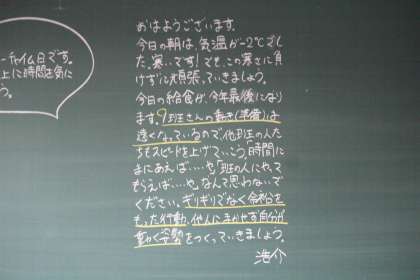 ーチャイム日です。
上に時間を気に
う。
おはようございます。
今日の朝は、気温が-2℃でし
た。寒いです！でも、この寒さに負
けずに頑張っていきましょう。
今日の給食が、今年最後になり
ます。9班さんの動き(準備)は
速くなっているので他班の人た
ちもスピードを上げていこう「時間に
まにあえば…」や「班の人にやって
もらえば…」や、なんて思わないで
ください。ギリギリでなく余裕を
もった行動、他人にまかせず自分が
動く姿勢をつくっていきましょう。
浩介